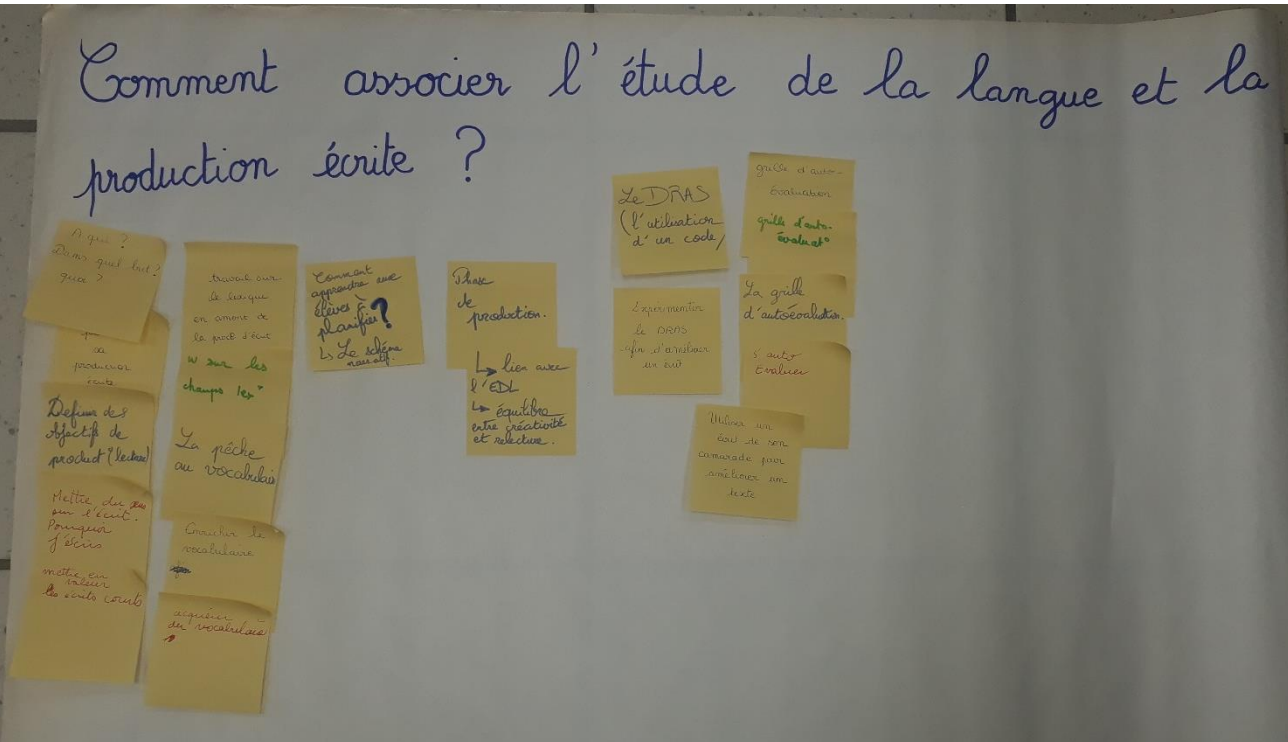 Comment associer l'étude de la langue et la
production écrite ?
A qui ?
Dans quel but ?
quoi ?
de
production
écrite
Définir des
objectifs de
product° (lecteur)
Mettre du sens
sur l'écrit.
Pourquoi
j'écris
mettre en
valeur
les écrits courts
travail sur
le lexique
en amont de
la prod d'écrit
w sur les
champs lex*
La pêche
au vocabulaire
Enrichir le
vocabulaire
acquérir
du vocabulaire
Comment
apprendre aux
élèves à
planifier ?
↳ Le schéma
narratif.
Phase
de
production.
↳ lien avec
l'EDL
↳ équilibre
entre créativité
et relecture.
Le DRAS
(l'utilisation
d'un code)
Expérimenter
le DRAS
afin d'améliorer
un écrit
Utiliser un
écrit de son
camarade pour
améliorer un
texte
grille d'auto-
évaluation
grille d'auto-
évaluat°
La grille
d'autoévaluation.
s'auto
Evaluer